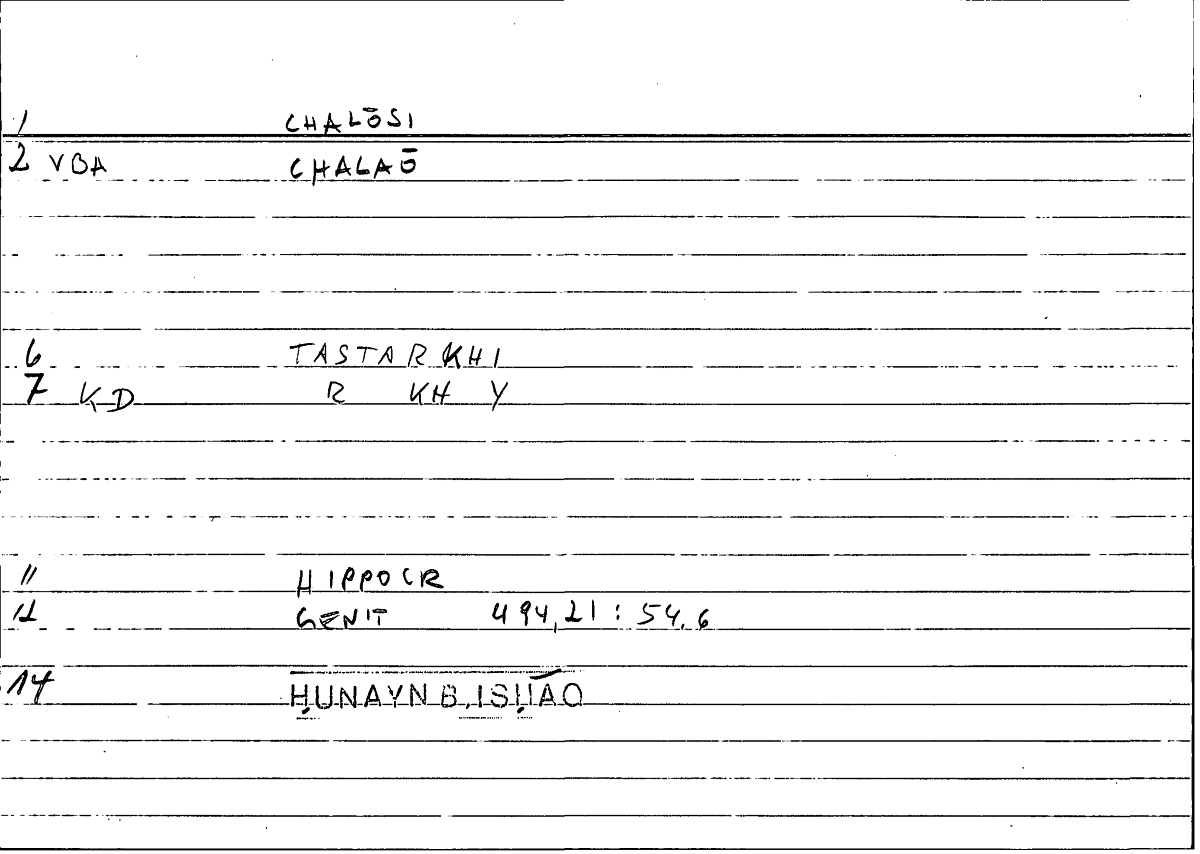 1 CHALŌSI
2 VBA CHALAŌ
6 TASTARKHI
7 KD R KH Y
11 HIPPOCR
12 GENIT 494,21 : 54.6
14 ḤUNAYN B. ISḤĀQ